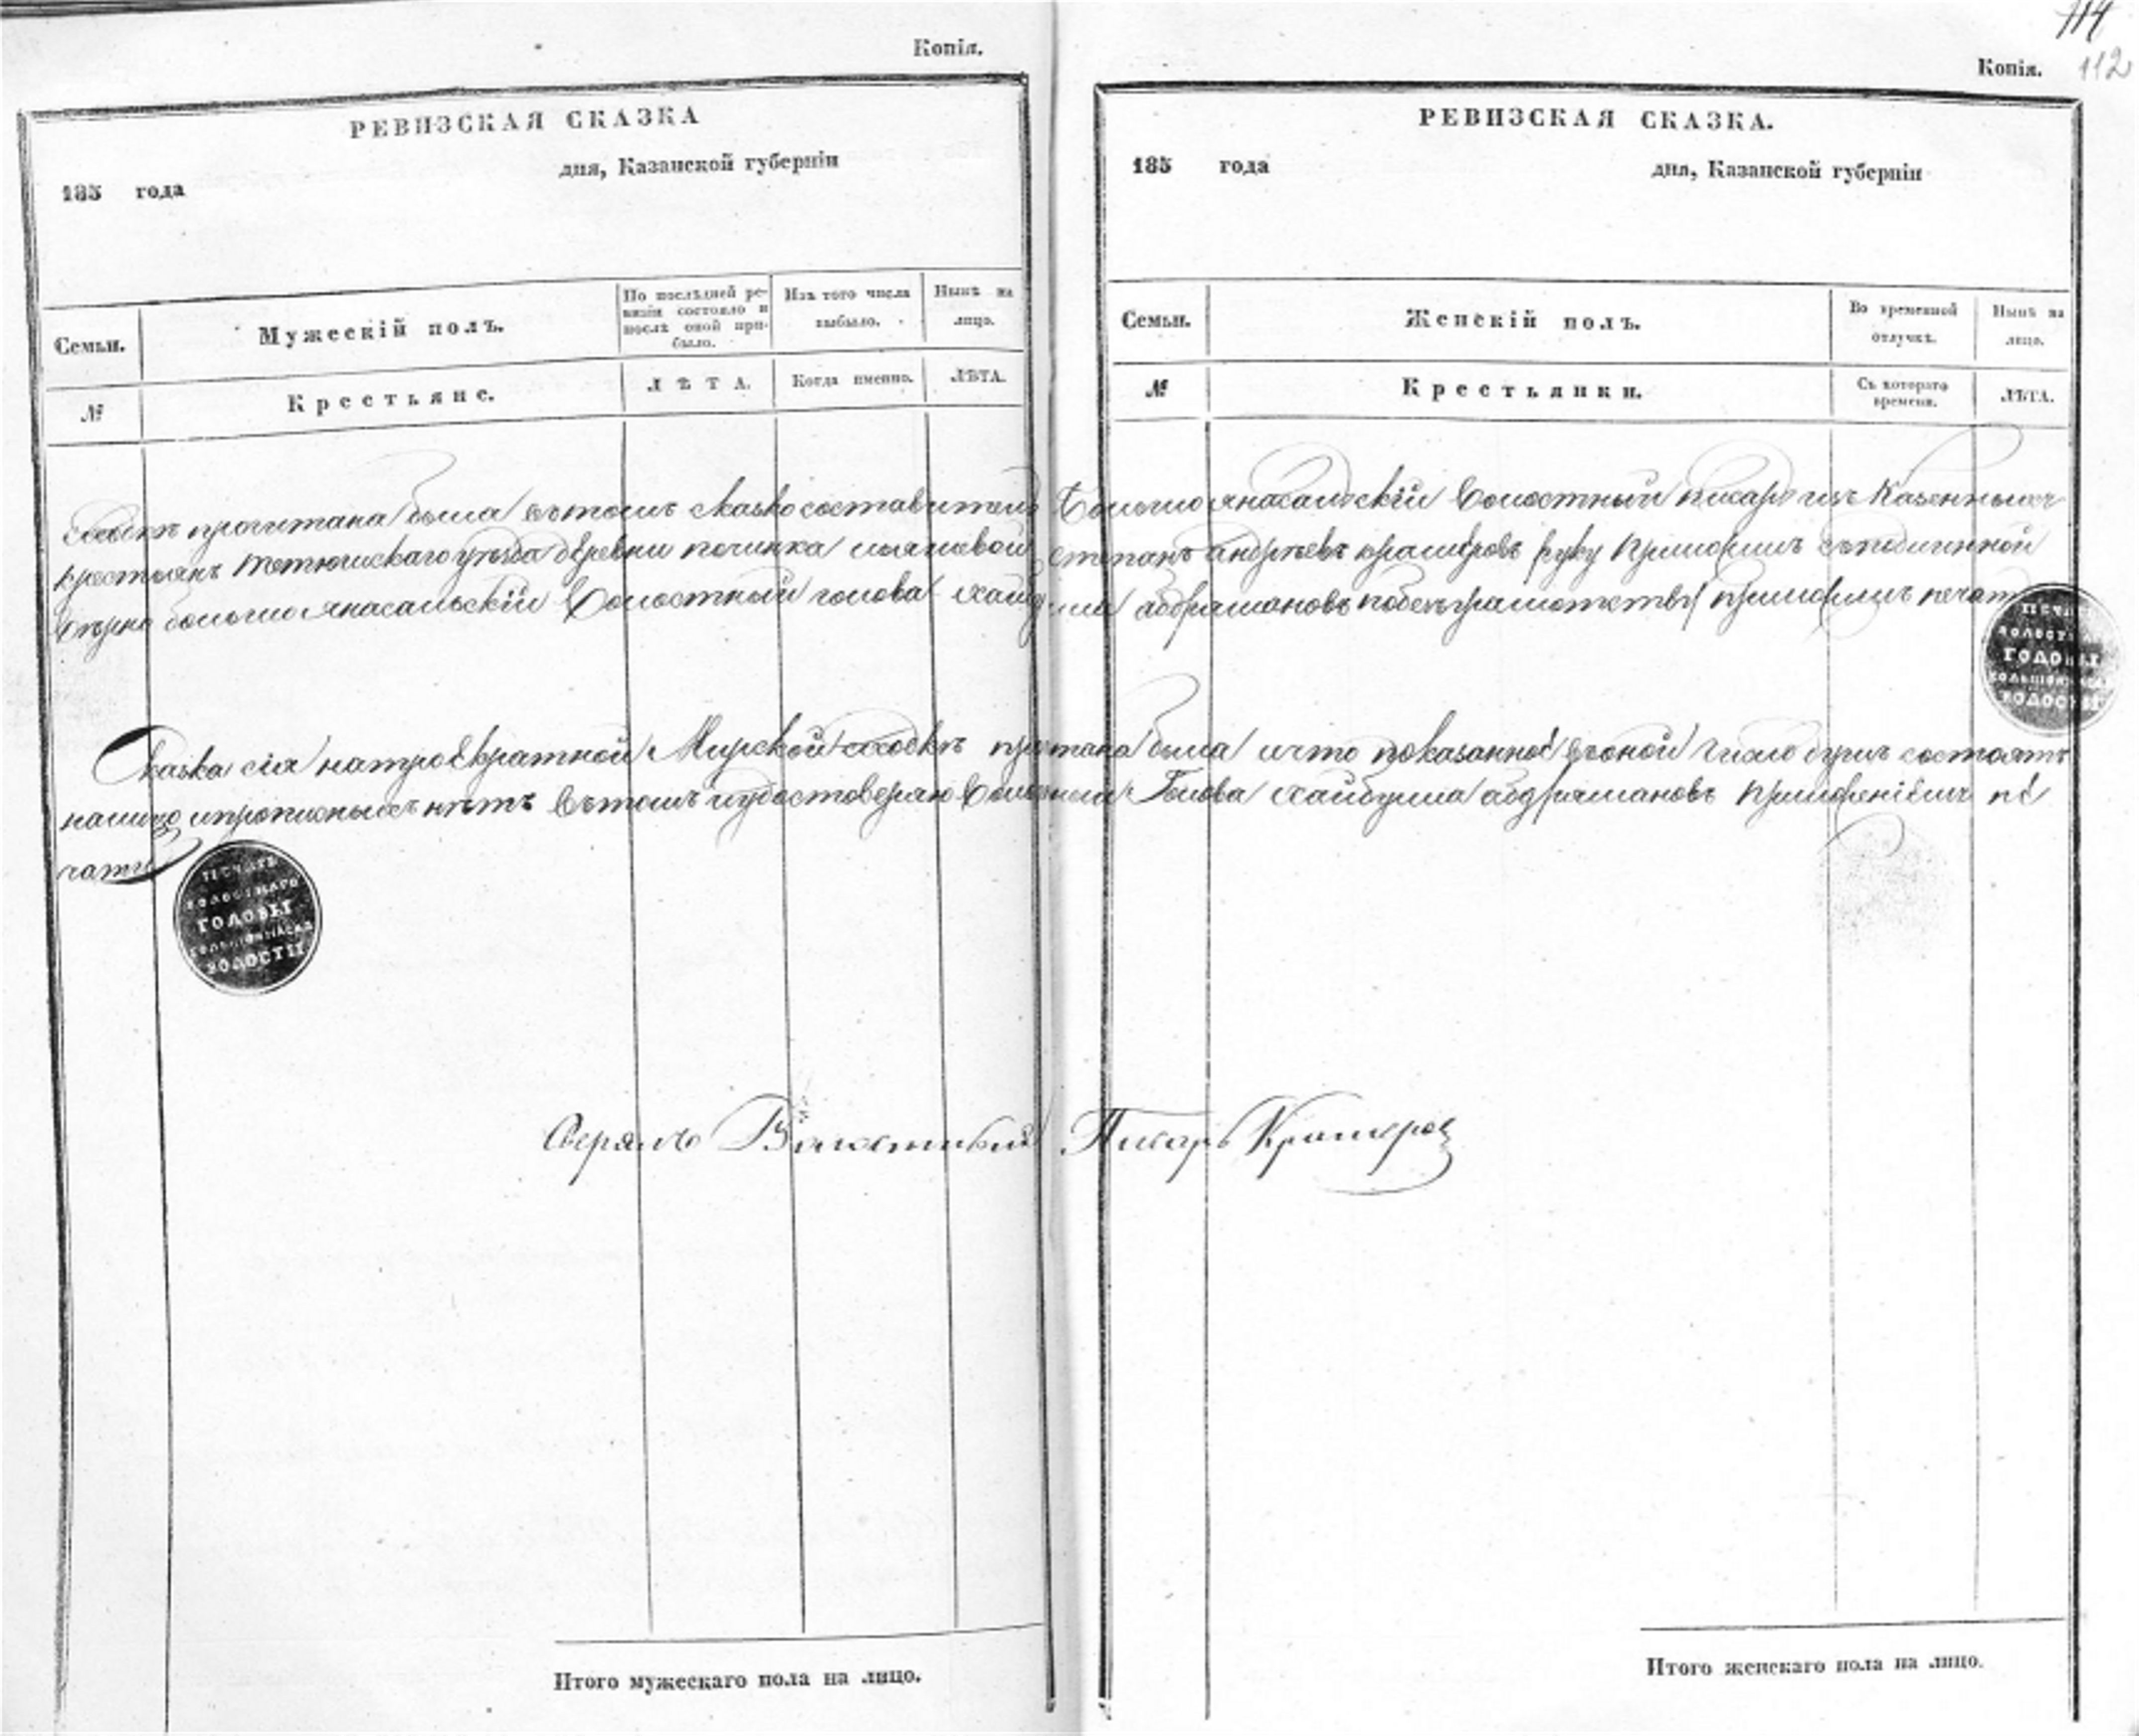 Копія.
РЕВИЗСКАЯ СКАЗКА
185 года дня, Казанской губерніи
Семьи. Мужескій полъ. По послѣдней ревизіи состояло и послѣ оной прибыло. Изъ того числа выбыло. Нынѣ на лицо.
№ Крестьяне. ЛѢТА. Когда именно. ЛѢТА.
114
Копія. 112
РЕВИЗСКАЯ СКАЗКА.
185 года дня, Казанской губерніи
Семьи. Женскій полъ. Во временной отлучкѣ. Нынѣ на лицо.
№ Крестьянки. Съ котораго времени. ЛѢТА.
прочитана была въ томъ сказкосоставитель Большо янасальскій Волостный писарь изъ Казенныхъ
крестьянъ тетюшскаго уѣзда деревни починка степанъ андреевъ руку Приложилъ съ подлинной
вѣрно большо янасальскій Волостный голова хайбулла абдрашановъ по безграмотству приложилъ печать
ПЕЧАТЬ
ВОЛОСТНАГО
ГОЛОВЫ
ВОЛОСТИ
Сказка сія на троекратной Мирской сходкѣ прочтана была и что показанное въ оной число душъ состоятъ
на лицо и прописныхъ нѣтъ Въ томъ и удостоверяю Волостный Голова хайбулла абдрашановъ Приложеніемъ пе
чати
ПЕЧАТЬ
ВОЛОСТНАГО
ГОЛОВЫ
ВОЛОСТИ
Верялъ Волостный Писарь
Итого мужескаго пола на лицо.
Итого женскаго пола на лицо.